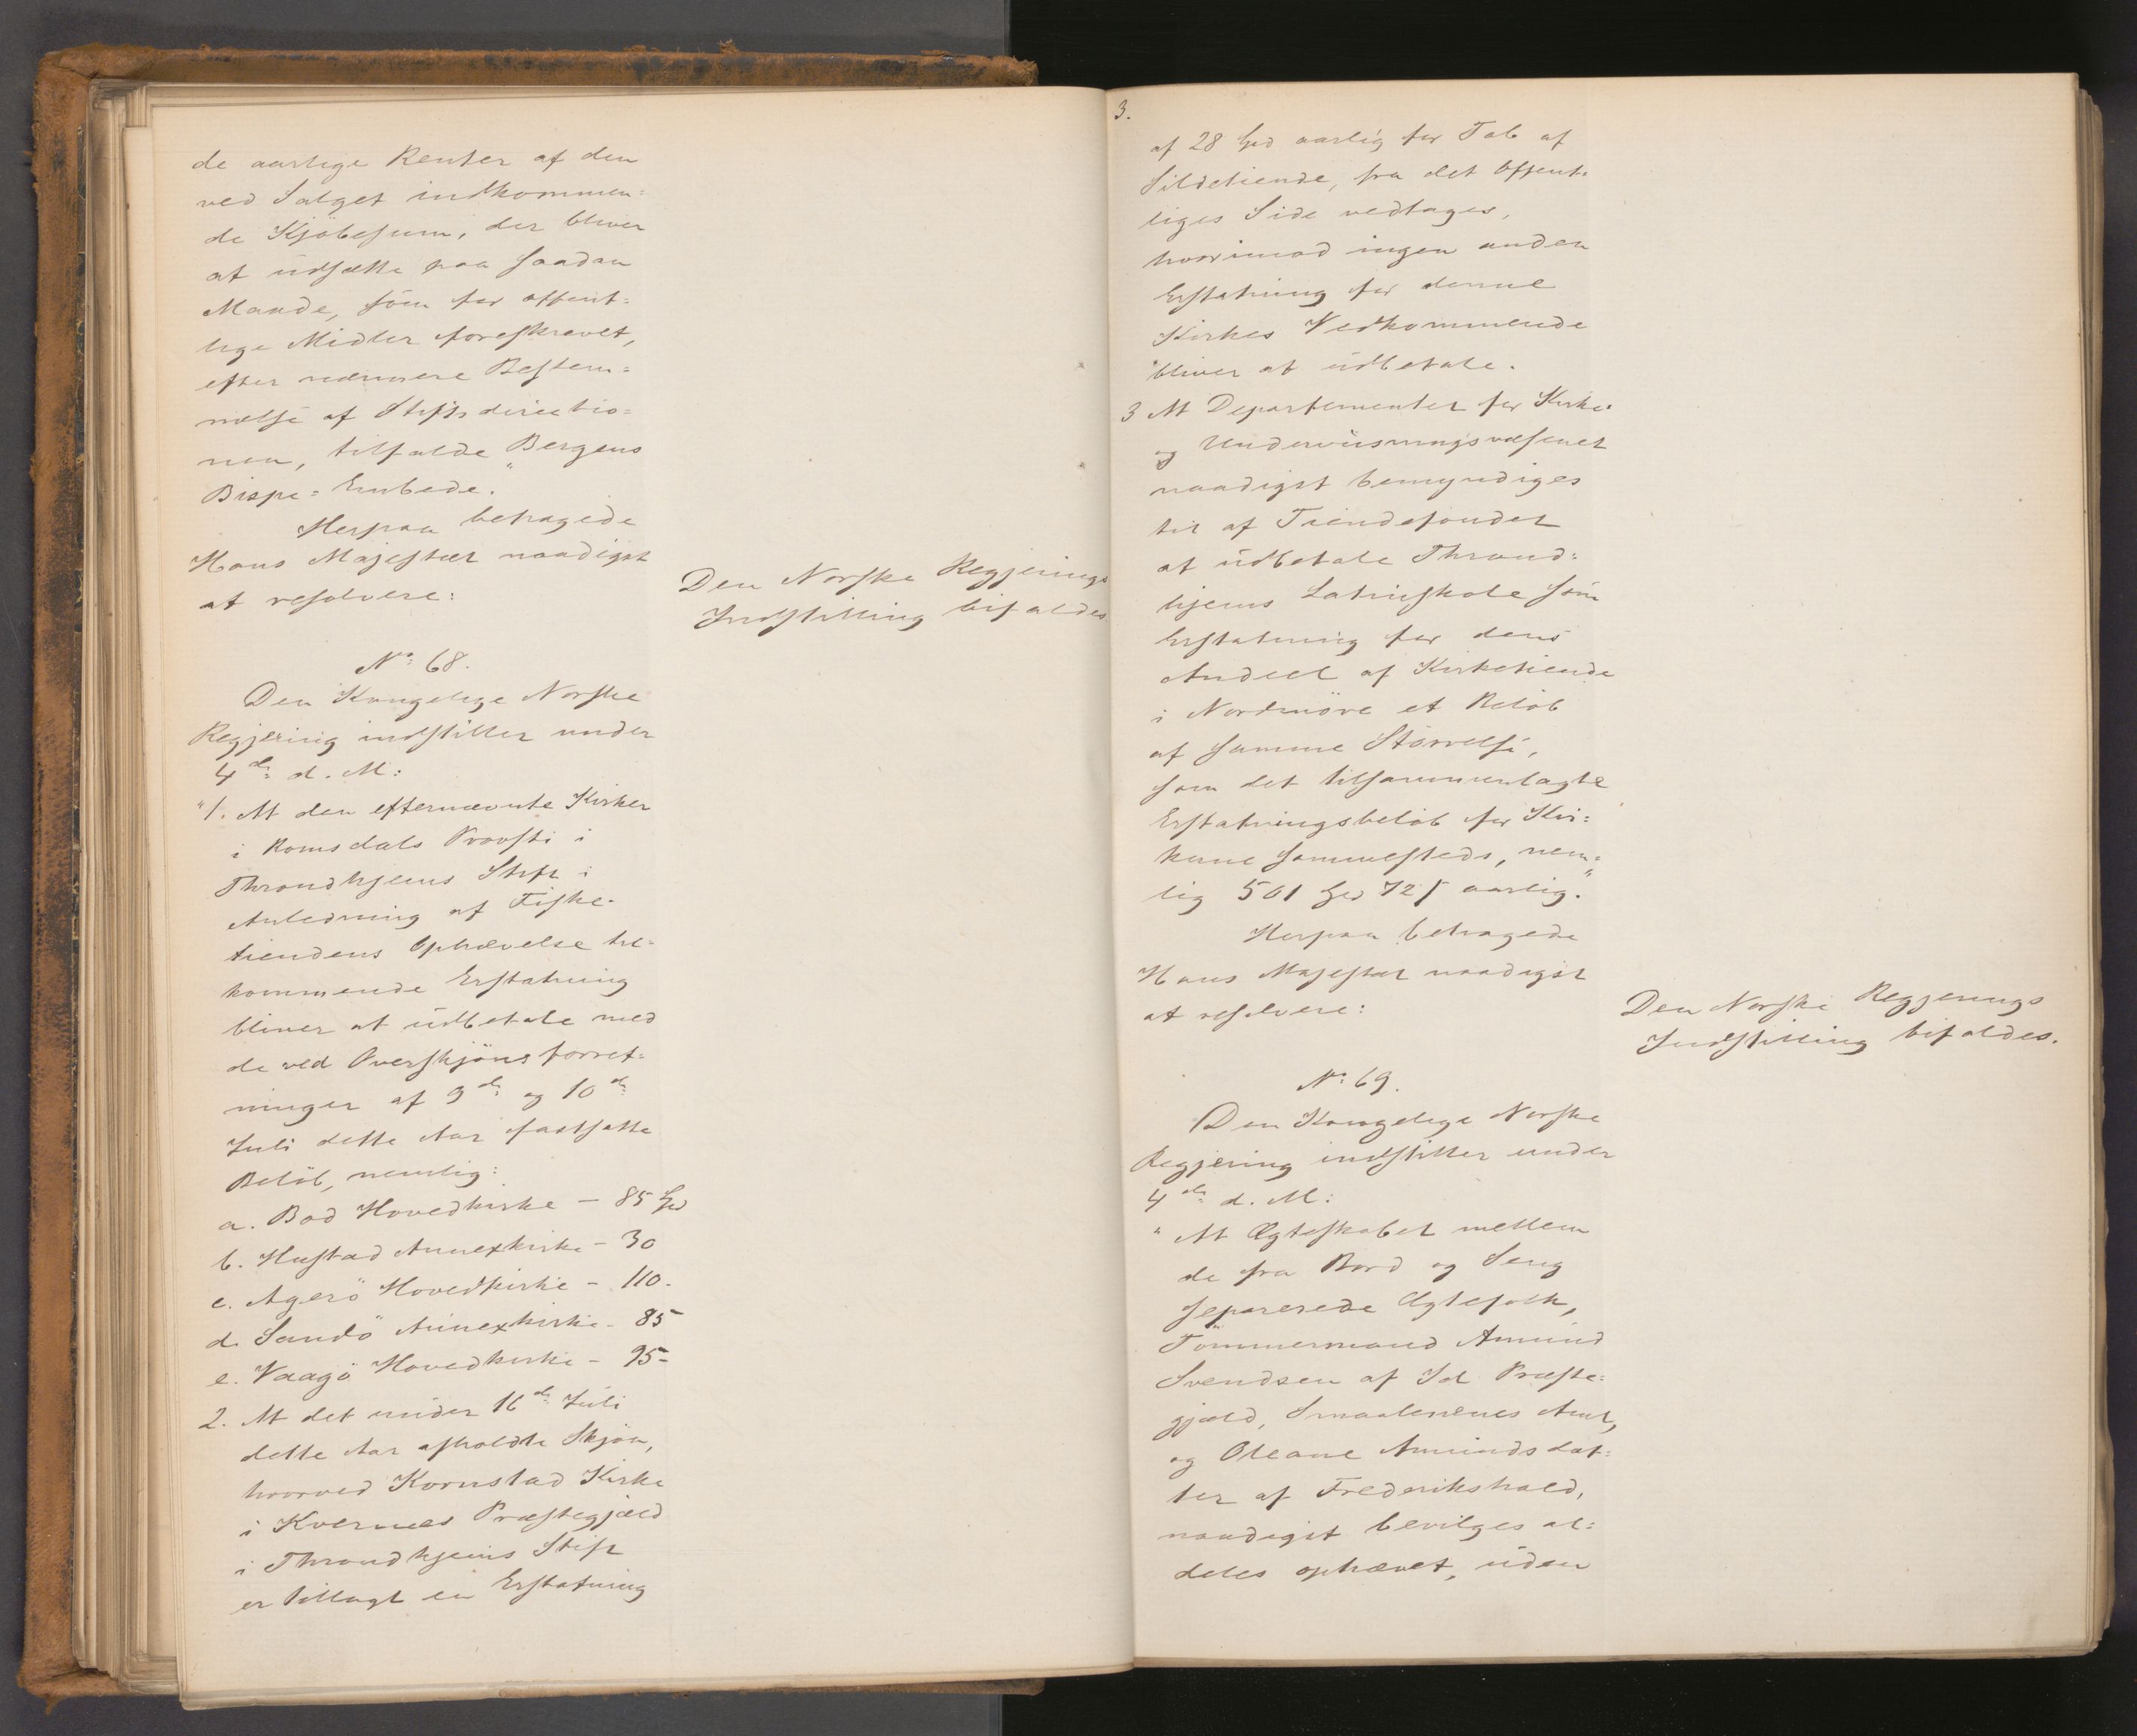 de aarlige Renter af den
ved Salget indkommen=
de Kjöbesum, der bliver
at udsætte paa saadan
Maade, som for offent=
lige Midler foreskrevet,
efter nærmere Bestem=
melse af Stiftsdirectio=
nen, tilfalde Bergens
Bispe=Embede."
Herpaa behagede
Hans Majestæt naadigst
at resolvere:
Den Norske Regjerings
Indstilling bifaldes.
No 68.
Den Kongelige Norske
Regjering indstiller under
4de d. M:
"1. At den efternævnte Kirker
i Romsdals Provsti i
Throndhjems Stift i
Anledning af Fiske-
tiendens Ophævelse til=
kommende Erstatning
bliver at udbetale med
de ved Overskjönsforret=
ninger af 9de og 10de
Juli dette Aar fastsatte
Belöb, nemlig:
a. Bod Hovedkirke — 85 Spd
b. Hustad Annexkirke — 30
c. Agerö Hovedkirke — 110.
d. Sandö Annexkirke — 85
e. Vaagö Hovedkirke — 95 -
2. At det under 16de Juli
dette Aar afholdte Skjön,
hvorved Kornstad Kirke
i Kvernes Præstegjæld
i Throndhjems Stift
er tillagt en Erstatning
3.
af 28 Spd aarlig for Tab af
Sildetiende, fra det Offent-
liges Side vedtages,
hvorimod ingen anden
Erstatning for denne
Kirkes Vedkommende
bliver at udbetale.
3 At Departementet for Kirke-
og Underviisningsvæsenet
naadigst bemyndiges
til af Tiendefondet
at udbetale Thrond=
hjems Latinskole som
Erstatning for dens
Andeel af Kirketiende
i Nordmöre et Belöb
af samme Störrelse,
som det tilsammenlagte
Erstatningsbelöb for Kir=
kerne sammesteds, nem=
lig 501 Spd 72 s aarlig."
Herpaa behagede
Hans Majestæt naadigst
at resolvere:
Den Norske Regjerings
Indstilling bifaldes.
No 69.
Den Kongelige Norske
Regjering indstiller under
4de d. M:
"At Ægteskabet mellem
de fra Bord og Seng
separerede Ægtefolk,
Tömmermand Amund
Svendsen af Id Præste=
gjæld, Smaalenenes Amt,
og Oleane Amundsdat=
ter af Frederikshald,
naadigst bevilges al=
deles ophævet, uden